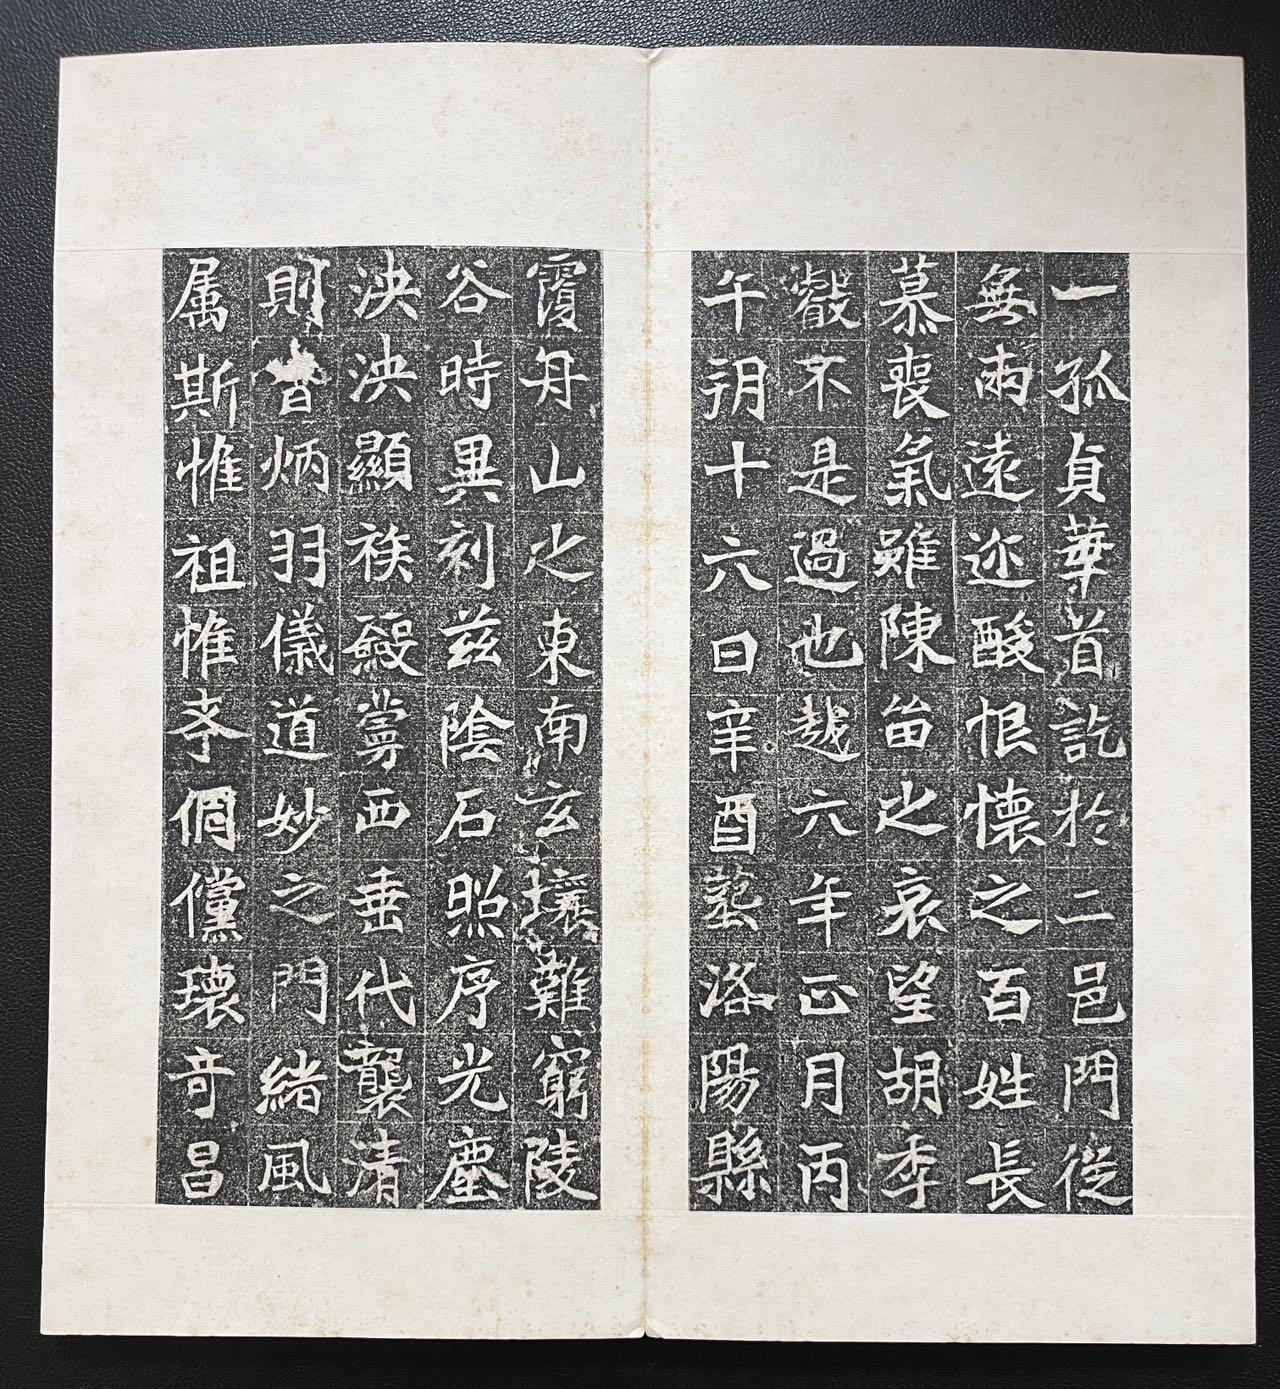 一孤貞華首訖於二邑門從
無兩遠迩酸恨懷之百姓長
慕喪氣雖陳留之哀望胡季
叡不是過也越六年正月丙
午朔十六日辛酉葬洛陽縣
覆舟山之東南玄壤難窮陵
谷時異刻茲陰石照序光塵
泱泱顯族殷嘗西垂代襲清
則昔炳羽儀道妙之門緒風
属斯惟祖惟孝倜儻瓌奇昌